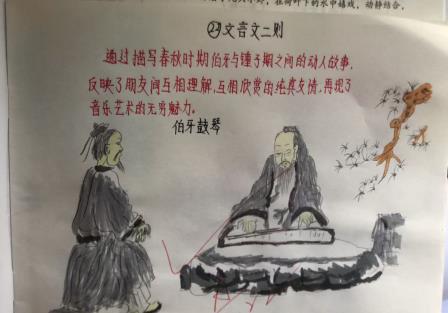 在荷叶下的水中嬉戏，动静结合。
㉒文言文二则
通过描写春秋时期伯牙与锺子期之间的动人故事，
反映了朋友间互相理解、互相欣赏的纯真友情，再现了
音乐艺术的无穷魅力。
伯牙鼓琴